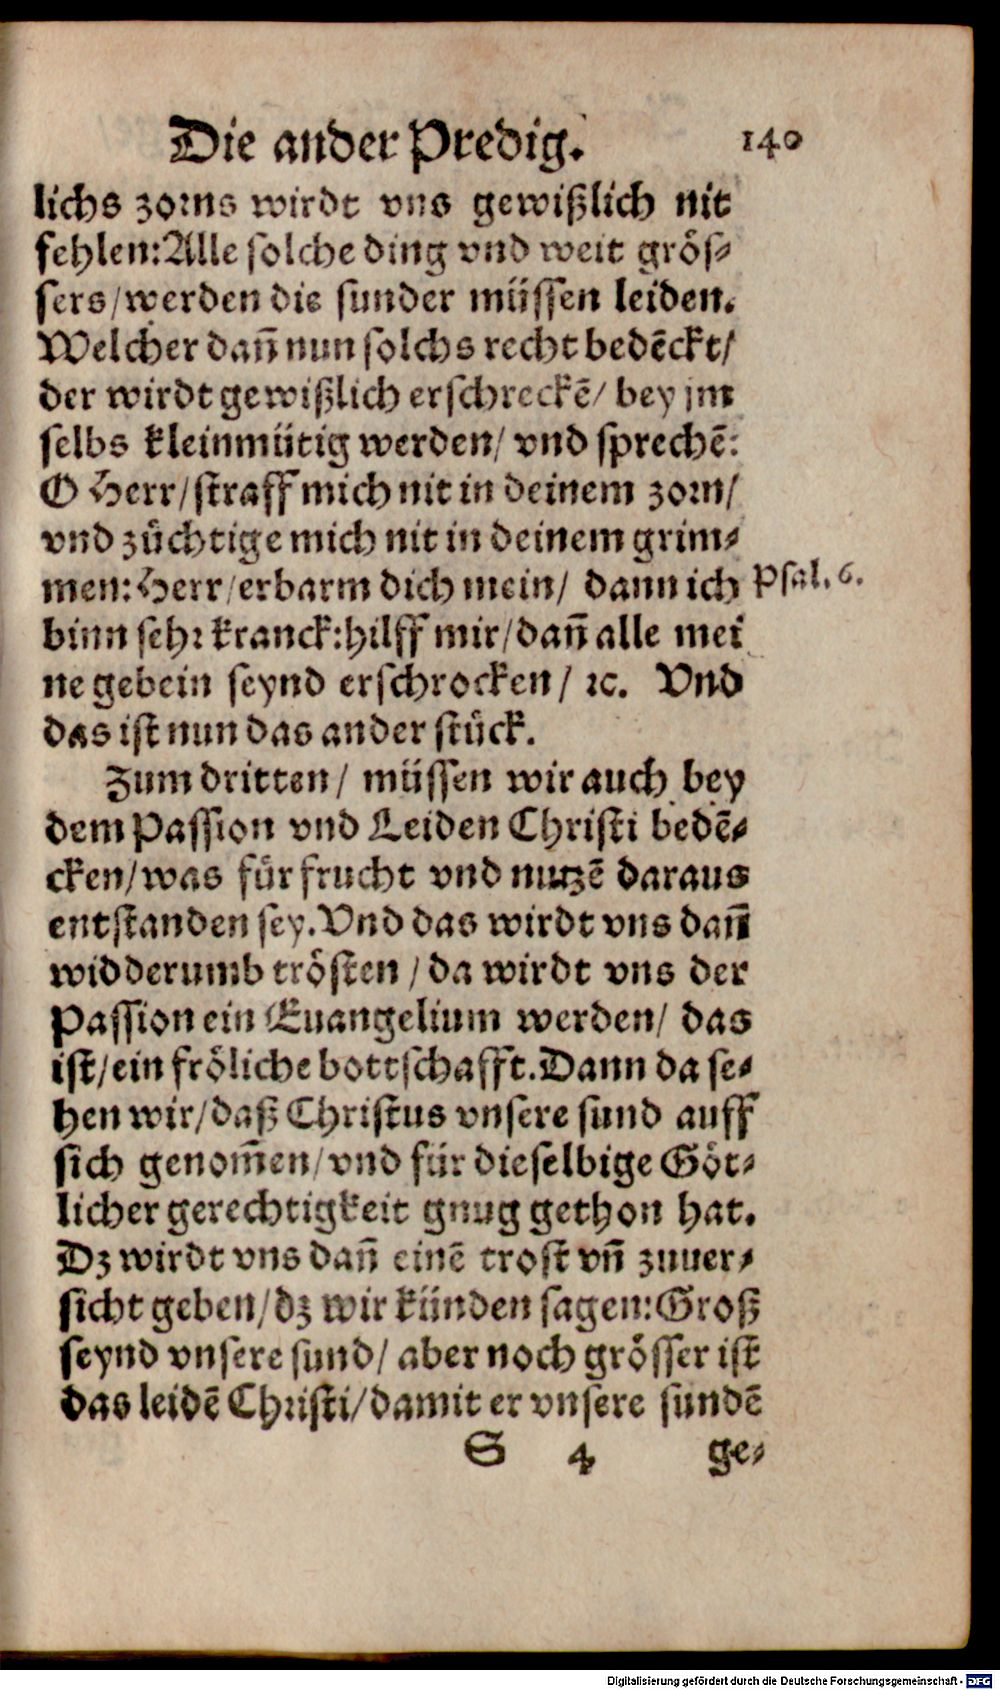 Die ander Predig. 140
lichs zorns wirdt vns gewißlich nit
fehlen: Alle solche ding vnd weit grös-
sers/ werden die sunder müssen leiden.
Welcher dañ nun solchs recht bedēckt/
der wirdt gewißlich erschreckē/ bey jm
selbs kleinmütig werden/ vnd sprechē:
O Herr/ straff mich nit in deinem zorn/
vnd züchtige mich nit in deinem grim-
men: Herr/ erbarm dich mein/ dann ich Psal. 6.
binn sehr kranck: hilff mir/ dañ alle mei
ne gebein seynd erschrocken/ ꝛc. Vnd
das ist nun das ander stück.
Zum dritten/ müssen wir auch bey
dem Passion vnd Leiden Christi bedē-
cken/ was für frucht vnd nutzē daraus
entstanden sey. Vnd das wirdt vns dañ
widderumb trösten/ da wirdt vns der
Passion ein Euangelium werden/ das
ist/ ein fröliche bottschafft. Dann da se-
hen wir/ daß Christus vnsere sund auff
sich genom̃en/ vnd für dieselbige Göt-
licher gerechtigkeit gnug gethon hat.
Dz wirdt vns dañ einē trost vñ zuuer-
sicht geben/ dz wir künden sagen: Groß
seynd vnsere sund/ aber noch grösser ist
das leidē Christi/ damit er vnsere sundē
S 4 ge-
Digitalisierung gefördert durch die Deutsche Forschungsgemeinschaft - DFG